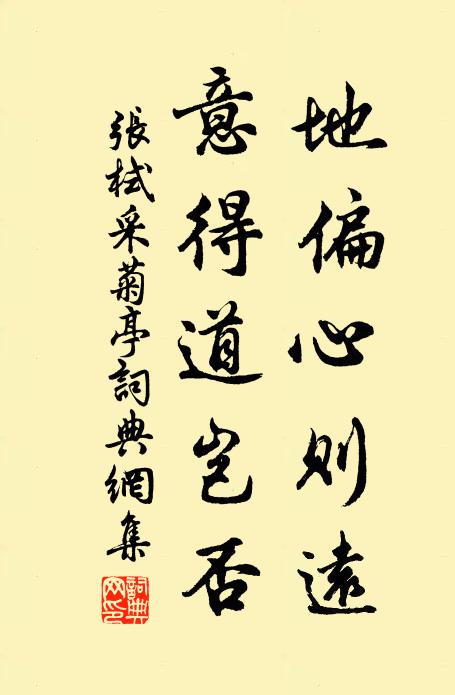 地偏心則遠
意得道豈否
張栻采菊亭詞典網集
詞典網印